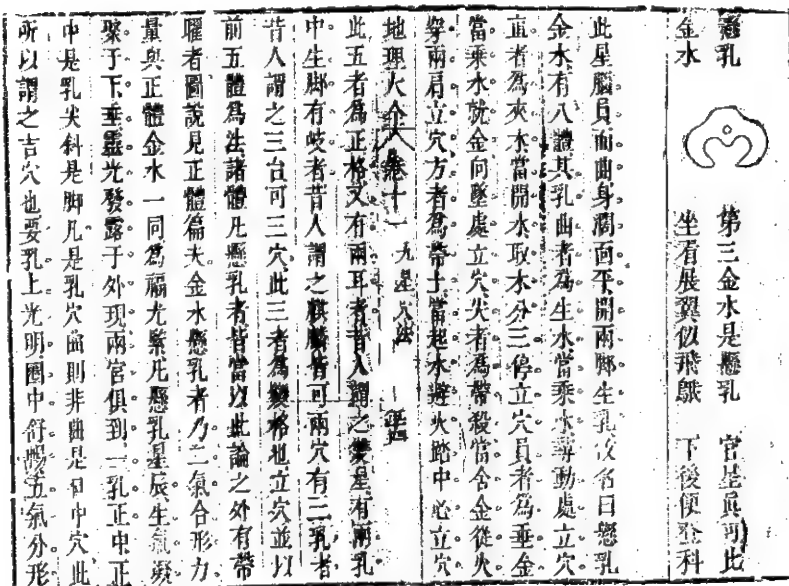 懸乳
金水
第三金水是懸乳 官星眞可此
坐看展翼似飛鵝 下後便登科
此星腦員而曲身濶面平開兩脚生乳故名曰懸乳
金水有八體其乳曲者為生水當乘水尋動處立穴
直者為夾水當開水取水分三停立穴員者為垂金
當乘水就金向墜處立穴尖者為帶殺當含金從火
穿兩肩立穴方者為帶土當起水避火路中心立穴
地理大全 卷十一 九星穴法
此五者為正格又有兩耳者昔人謂之 星有兩乳
中生脚有岐者昔人謂之麒麟皆可兩穴有三乳者
昔人謂之三台可三穴此三者為變格也立穴並以
前五體為法諸體凡懸乳者皆當以此論之外有帶
曜者圖說見正體篇夫金水懸乳者乃二氣合形力
量與正體金水一同為福尤緊凡懸乳星辰生氣凝
聚于下垂靈光發露于外現兩宮俱到一乳正中正
中是乳尖斜是脚凡是乳穴曲則非曲是 中穴此
所以謂之吉穴也要乳上光明圈中舒暢五氣外形